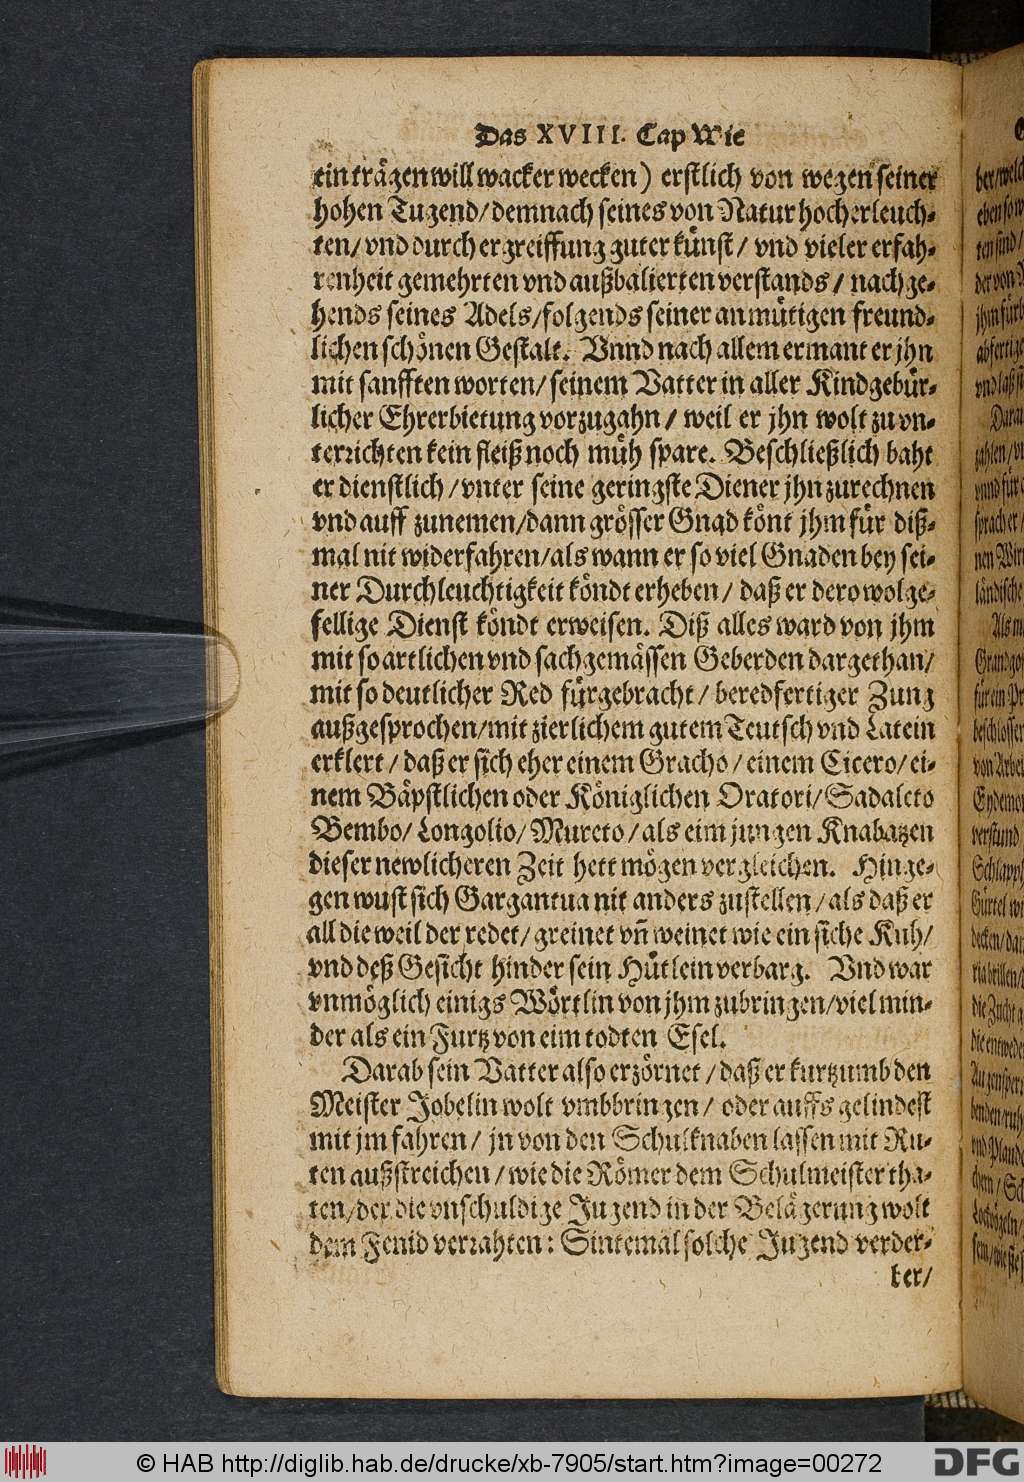 Das XVIII. Cap Wie
ein trägen will wacker wecken) erstlich von wegen seiner
hohen Tugend/ demnach seines von Natur hocherleuch-
ten/ vnd durch ergreiffung guter künst/ vnd vieler erfah-
renheit gemehrten vnd außbalierten verstands/ nachge-
hends seines Adels/ folgends seiner anmütigen freund-
lichen schönen Gestalt. Vnnd nach allem ermant er jhn
mit sanfften worten/ seinem Vatter in aller Kindgebür-
licher Ehrerbietung vorzugahn/ weil er jhn wolt zu vn-
terrichten kein fleiß noch müh spare. Beschließlich baht
er dienstlich/ vnter seine geringste Diener jhn zurechnen
vnd auff zunemen/ dann grösser Gnad könt jhm für diß-
mal nit widerfahren/ als wann er so viel Gnaden bey sei-
ner Durchleuchtigkeit köndt erheben/ daß er dero wolge-
fellige Dienst köndt erweisen. Diß alles ward von jhm
mit so artlichen vnd sachgemässen Geberden dargethan/
mit so deutlicher Red fürgebracht/ beredfertiger Zung
außgesprochen/ mit zierlichem gutem Teutsch vnd Latein
erklert/ daß er sich eher einem Gracho/ einem Cicero/ ei-
nem Bäpstlichen oder Königlichen Oratori/ Sadaleto
Bembo/ Longolio/ Mureto/ als eim jungen Knabatzen
dieser newlicheren Zeit hett mögen vergleichen. Hinge-
gen wust sich Gargantua nit anders zustellen/ als daß er
all die weil der redet/ greinet vñ weinet wie ein siche Kuh/
vnd deß Gesicht hinder sein Hütlein verbarg. Vnd war
vnmöglich einigs Wörtlin von jhm zubringen/ viel min-
der als ein Furtz von eim todten Esel.
Darab sein Vatter also erzörnet/ daß er kurtzumb den
Meister Jobelin wolt vmbbringen/ oder auffs gelindest
mit jm fahren/ jn von den Schulknaben lassen mit Ru-
ten außstreichen/ wie die Römer dem Schulmeister tha-
ten/ der die vnschuldige Jugend in der Belägerung wolt
dem Feind verrahten: Sintemal solche Jugend verder-
ter/
© HAB http://diglib.hab.de/drucke/xb-7905/start.htm?image=00272
DFG